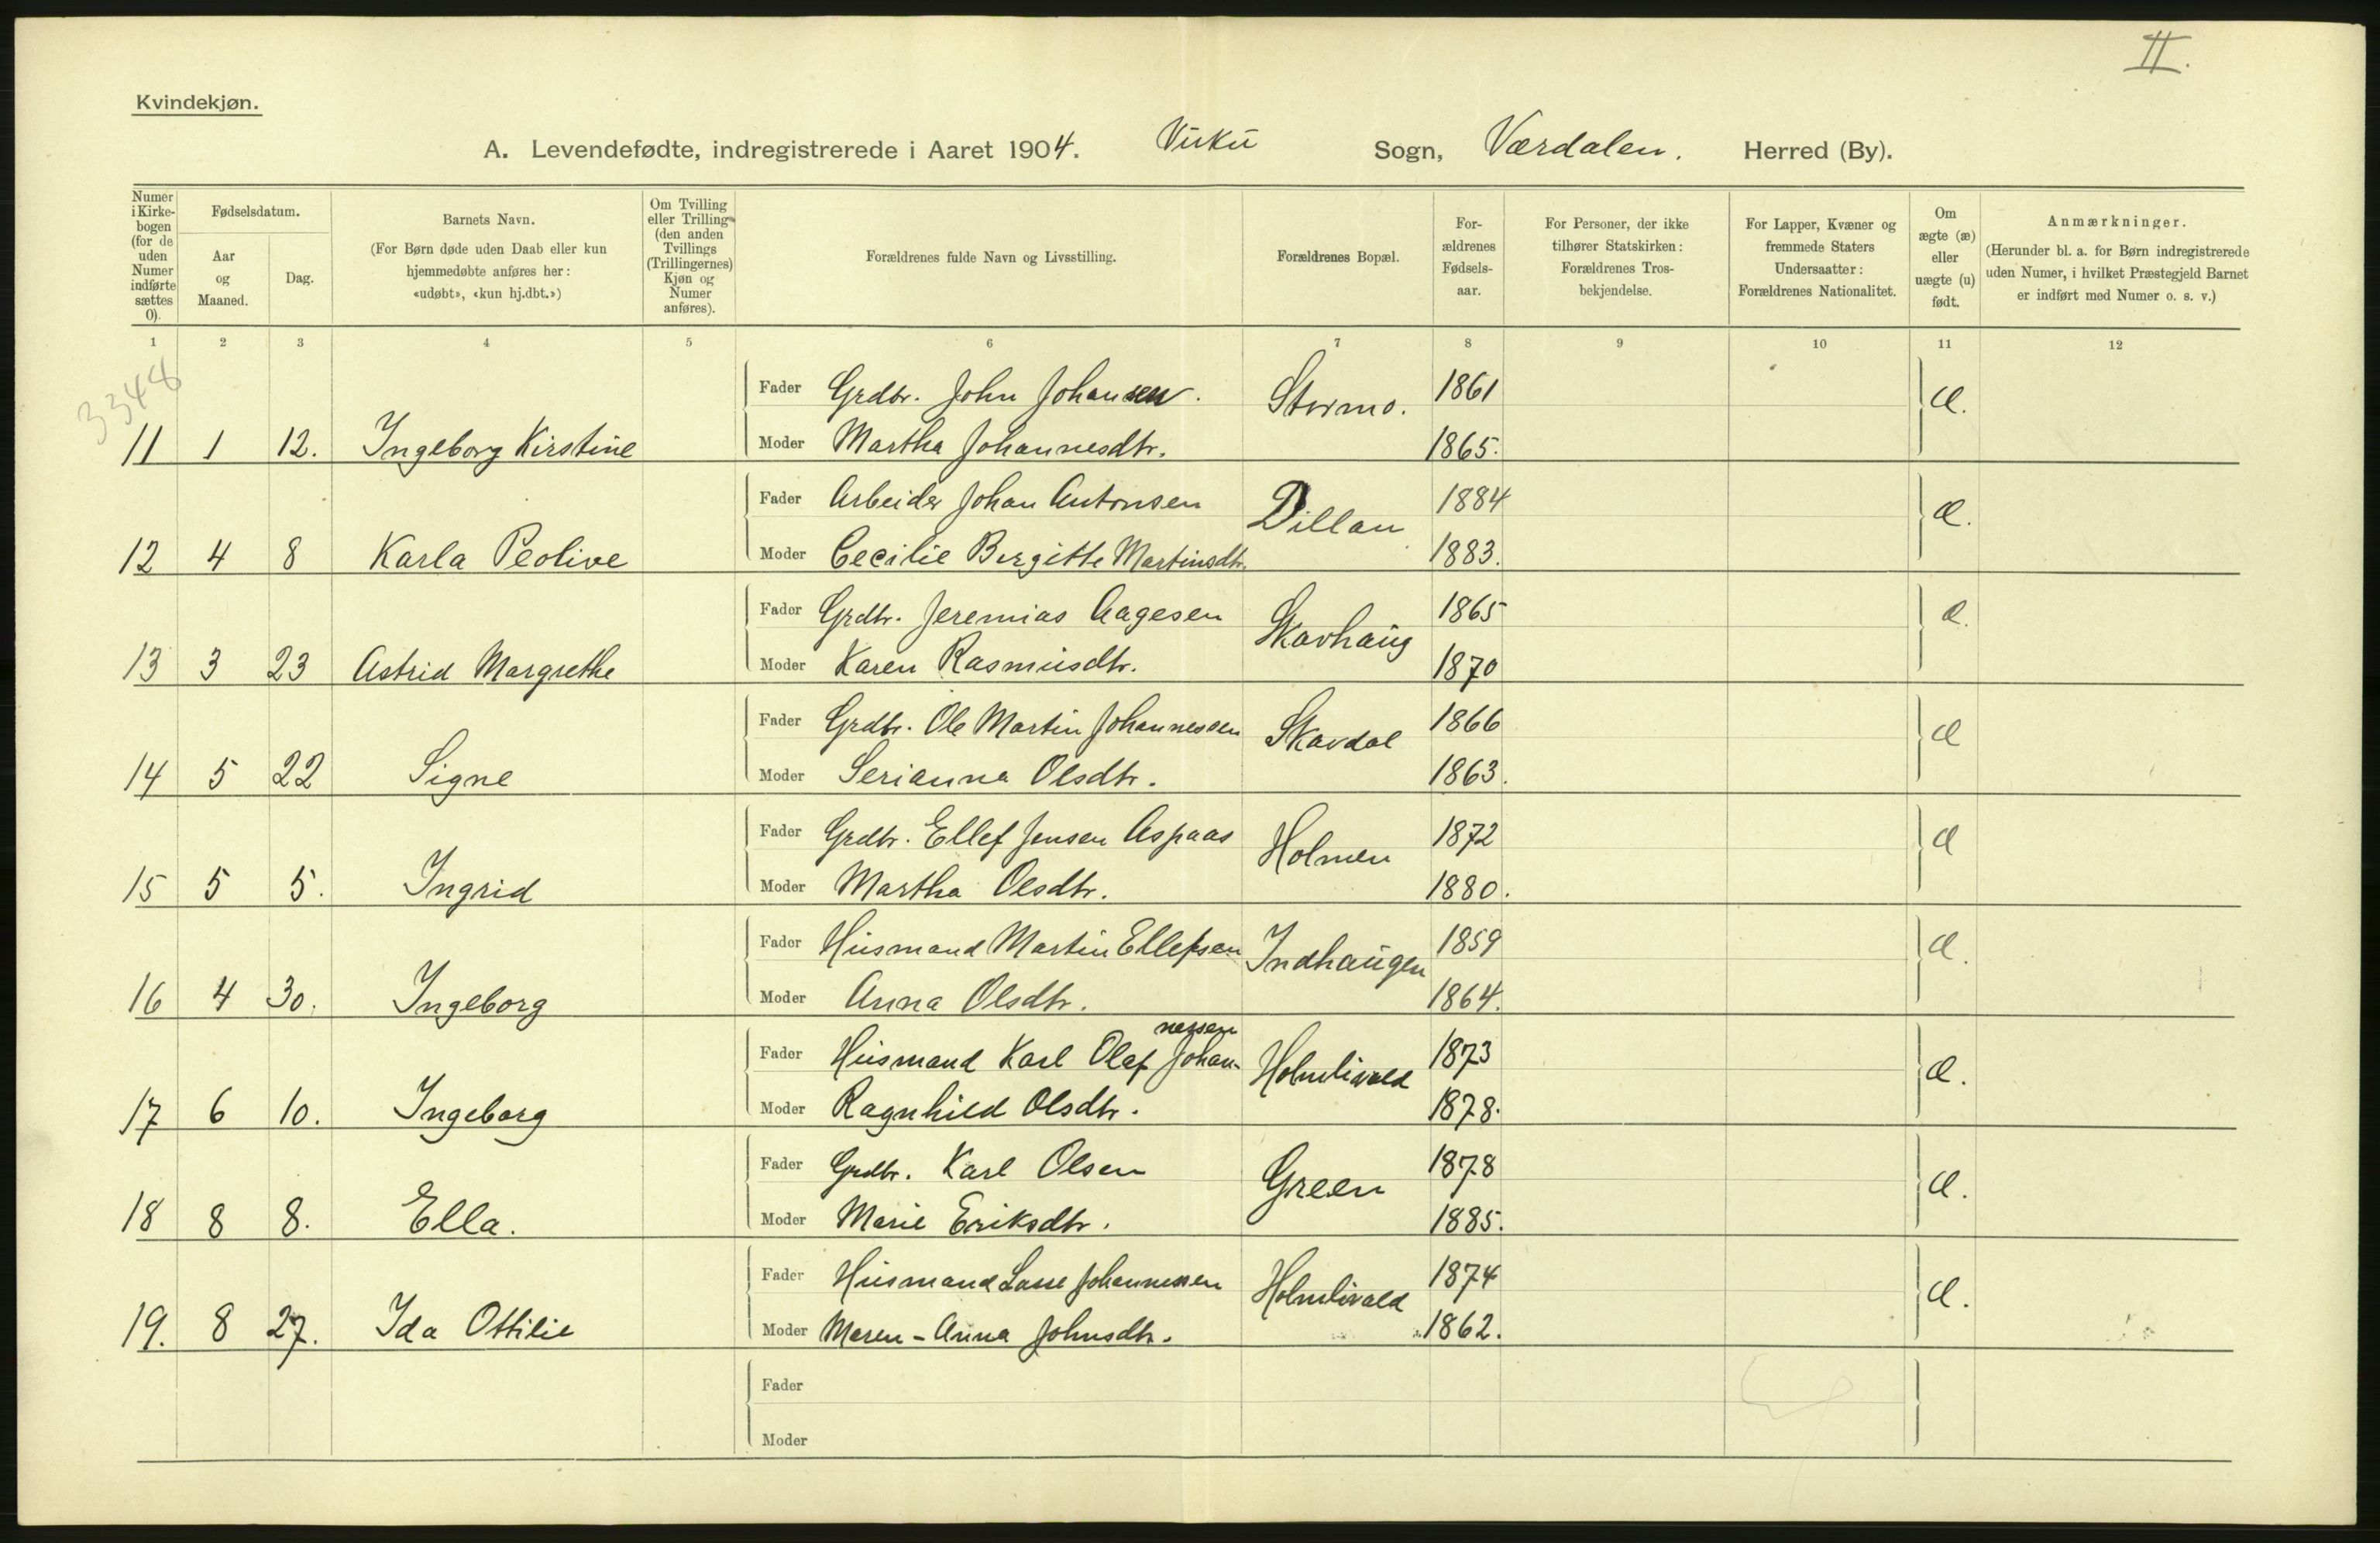 II.
Kvindekjøn.
A. Levendefødte, indregistrerede i Aaret 1904. Vuku Sogn, Værdalen. Herred (By).
Numer i Kirke-bogen (for de uden Numer indførte sættes 0).
Fødselsdatum.
Aar og Maaned.
Dag.
Barnets Navn.
(For Børn døde uden Daab eller kun
hjemmedøbte anføres her:
«udøbt», «kun hj.dbt.»)
Om Tvilling
eller Trilling
(den anden
Tvillings
(Trillingernes)
Kjøn og
Numer
anføres).
Forældrenes fulde Navn og Livsstilling.
Forældrenes Bopæl.
For-
ældrenes
Fødsels-
aar.
For Personer, der ikke
tilhører Statskirken:
Forældrenes Tros-
bekjendelse.
For Lapper, Kvæner og
fremmede Staters
Undersaatter:
Forældrenes Nationalitet.
Om
ægte (æ)
eller
uægte (u)
født.
Anmærkninger.
(Herunder bl. a. for Børn indregistrerede
uden Numer, i hvilket Præstegjeld Barnet
er indført med Numer o. s. v.)
1 2 3 4 5 6 7 8 9 10 11 12
3348
Fader Grdbr. John Johansen. Stermo. 1861 æ.
11 1 12. Ingeborg Kirstine Moder Martha Johannesdtr. 1865.
Fader Arbeider Johan Antonsen Dillan 1884 æ.
12 4 8 Karla Peolive Moder Cecilie Bergitte Martinsdtr. 1883.
Fader Grdbr. Jeremias Aagesen Skavhaug 1865 æ.
13 3 23 Astrid Margrethe Moder Karen Rasmusdtr. 1870
Fader Grdbr. Ole Martin Johannessen Skavdal 1866 æ
14 5 22 Signe Moder Serianna Olsdtr. 1863.
Fader Grdbr. Ellef Jensen Aspaas Holmen 1872 æ
15 5 5. Ingrid Moder Martha Olsdtr. 1880.
Fader Husmand Martin Ellefsen Indhaugen 1859 æ.
16 4 30. Ingeborg Moder Anna Olsdtr. 1864.
nessen
Fader Husmand Karl Olaf Johan- Holmlivald 1873 æ.
17 6 10. Ingeborg Moder Ragnhild Olsdtr. 1878.
Fader Grdbr. Karl Olsen Green 1878 æ.
18 8 8. Ella. Moder Marie Eriksdtr. 1885.
Fader Husmand Lasse Johannessen Holmlivald 1874 æ.
19. 8 27. Ida Ottilie Moder Maren-Anna Johnsdtr. 1862.
Fader
Moder